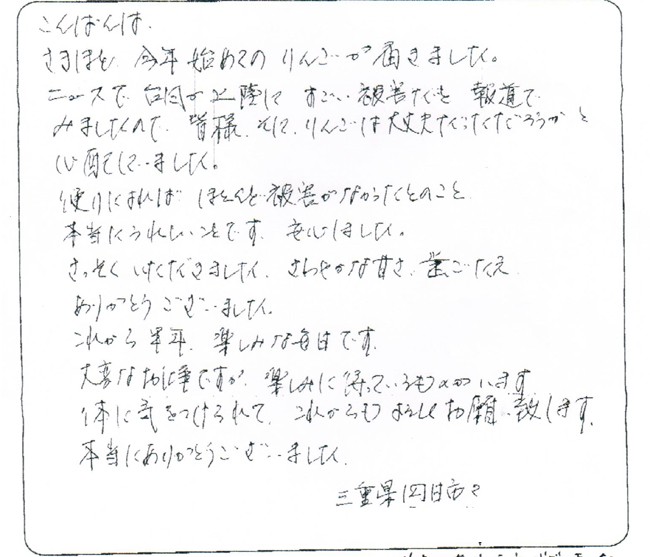 こんばんは.
さきほど、今年始めてのりんごが届きました。
ニュースで台風が上陸してすごい被害だと報道で
みましたので、皆様、そしてりんごは大丈夫だっただろうかと
心配していました。
便りによれば ほとんど被害がなかったとのこと
本当にうれしいことです. 安心しました。
さっそくいただきました. さわやかな甘さ、歯ごたえ
ありがとうございました.
これから半年、楽しみな毎日です.
大変なお仕事ですが、楽しみに待っているものがいます
体に気をつけられて、これからもよろしくお願い致します.
本当にありがとうございました.
三重県四日市